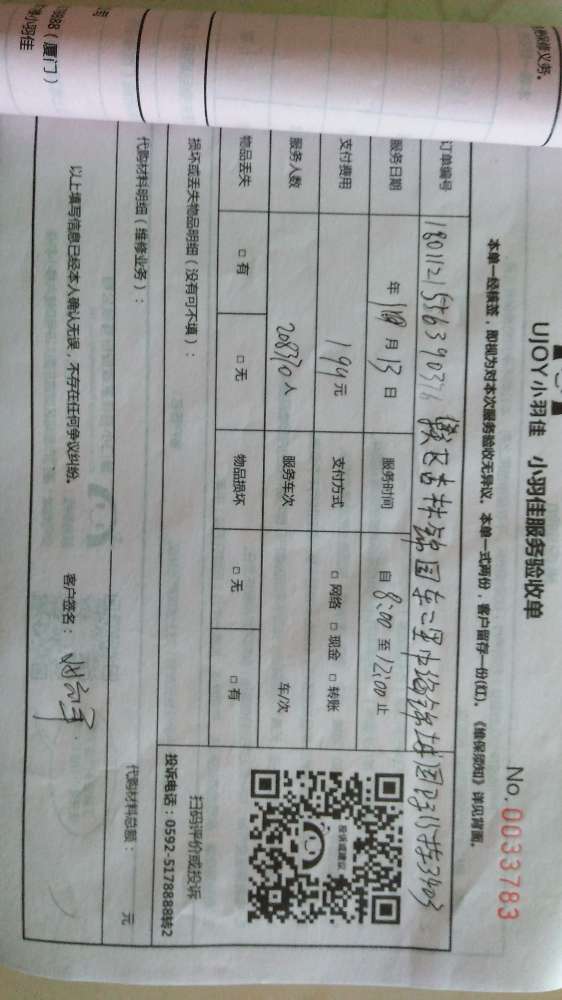 保修义务。
8888（厦门）
小羽佳
UJOY小羽佳 小羽佳服务验收单
No. 0033783
本单一经核签，即视为对本次服务验收无异议。本单一式两份，客户留存一份(红)。《维保须知》详见背面。
订单编号
服务日期 年 月 13 日 服务时间 自 8:00 至 12:00 止
支付费用 199 元 支付方式 □ 网络 □ 现金 □ 转账
服务人数 208370 人 服务车次 车/次
物品丢失 □ 有 □ 无 物品损坏 □ 无 □ 有
投诉或建议
扫码评价或投诉
投诉电话：0592-5178888转2
损坏或丢失物品明细（没有可不填）：
代购材料明细（维修业务）：
代购材料总额： 元
以上填写信息已经本人确认无误，不存在任何争议纠纷。 客户签名：